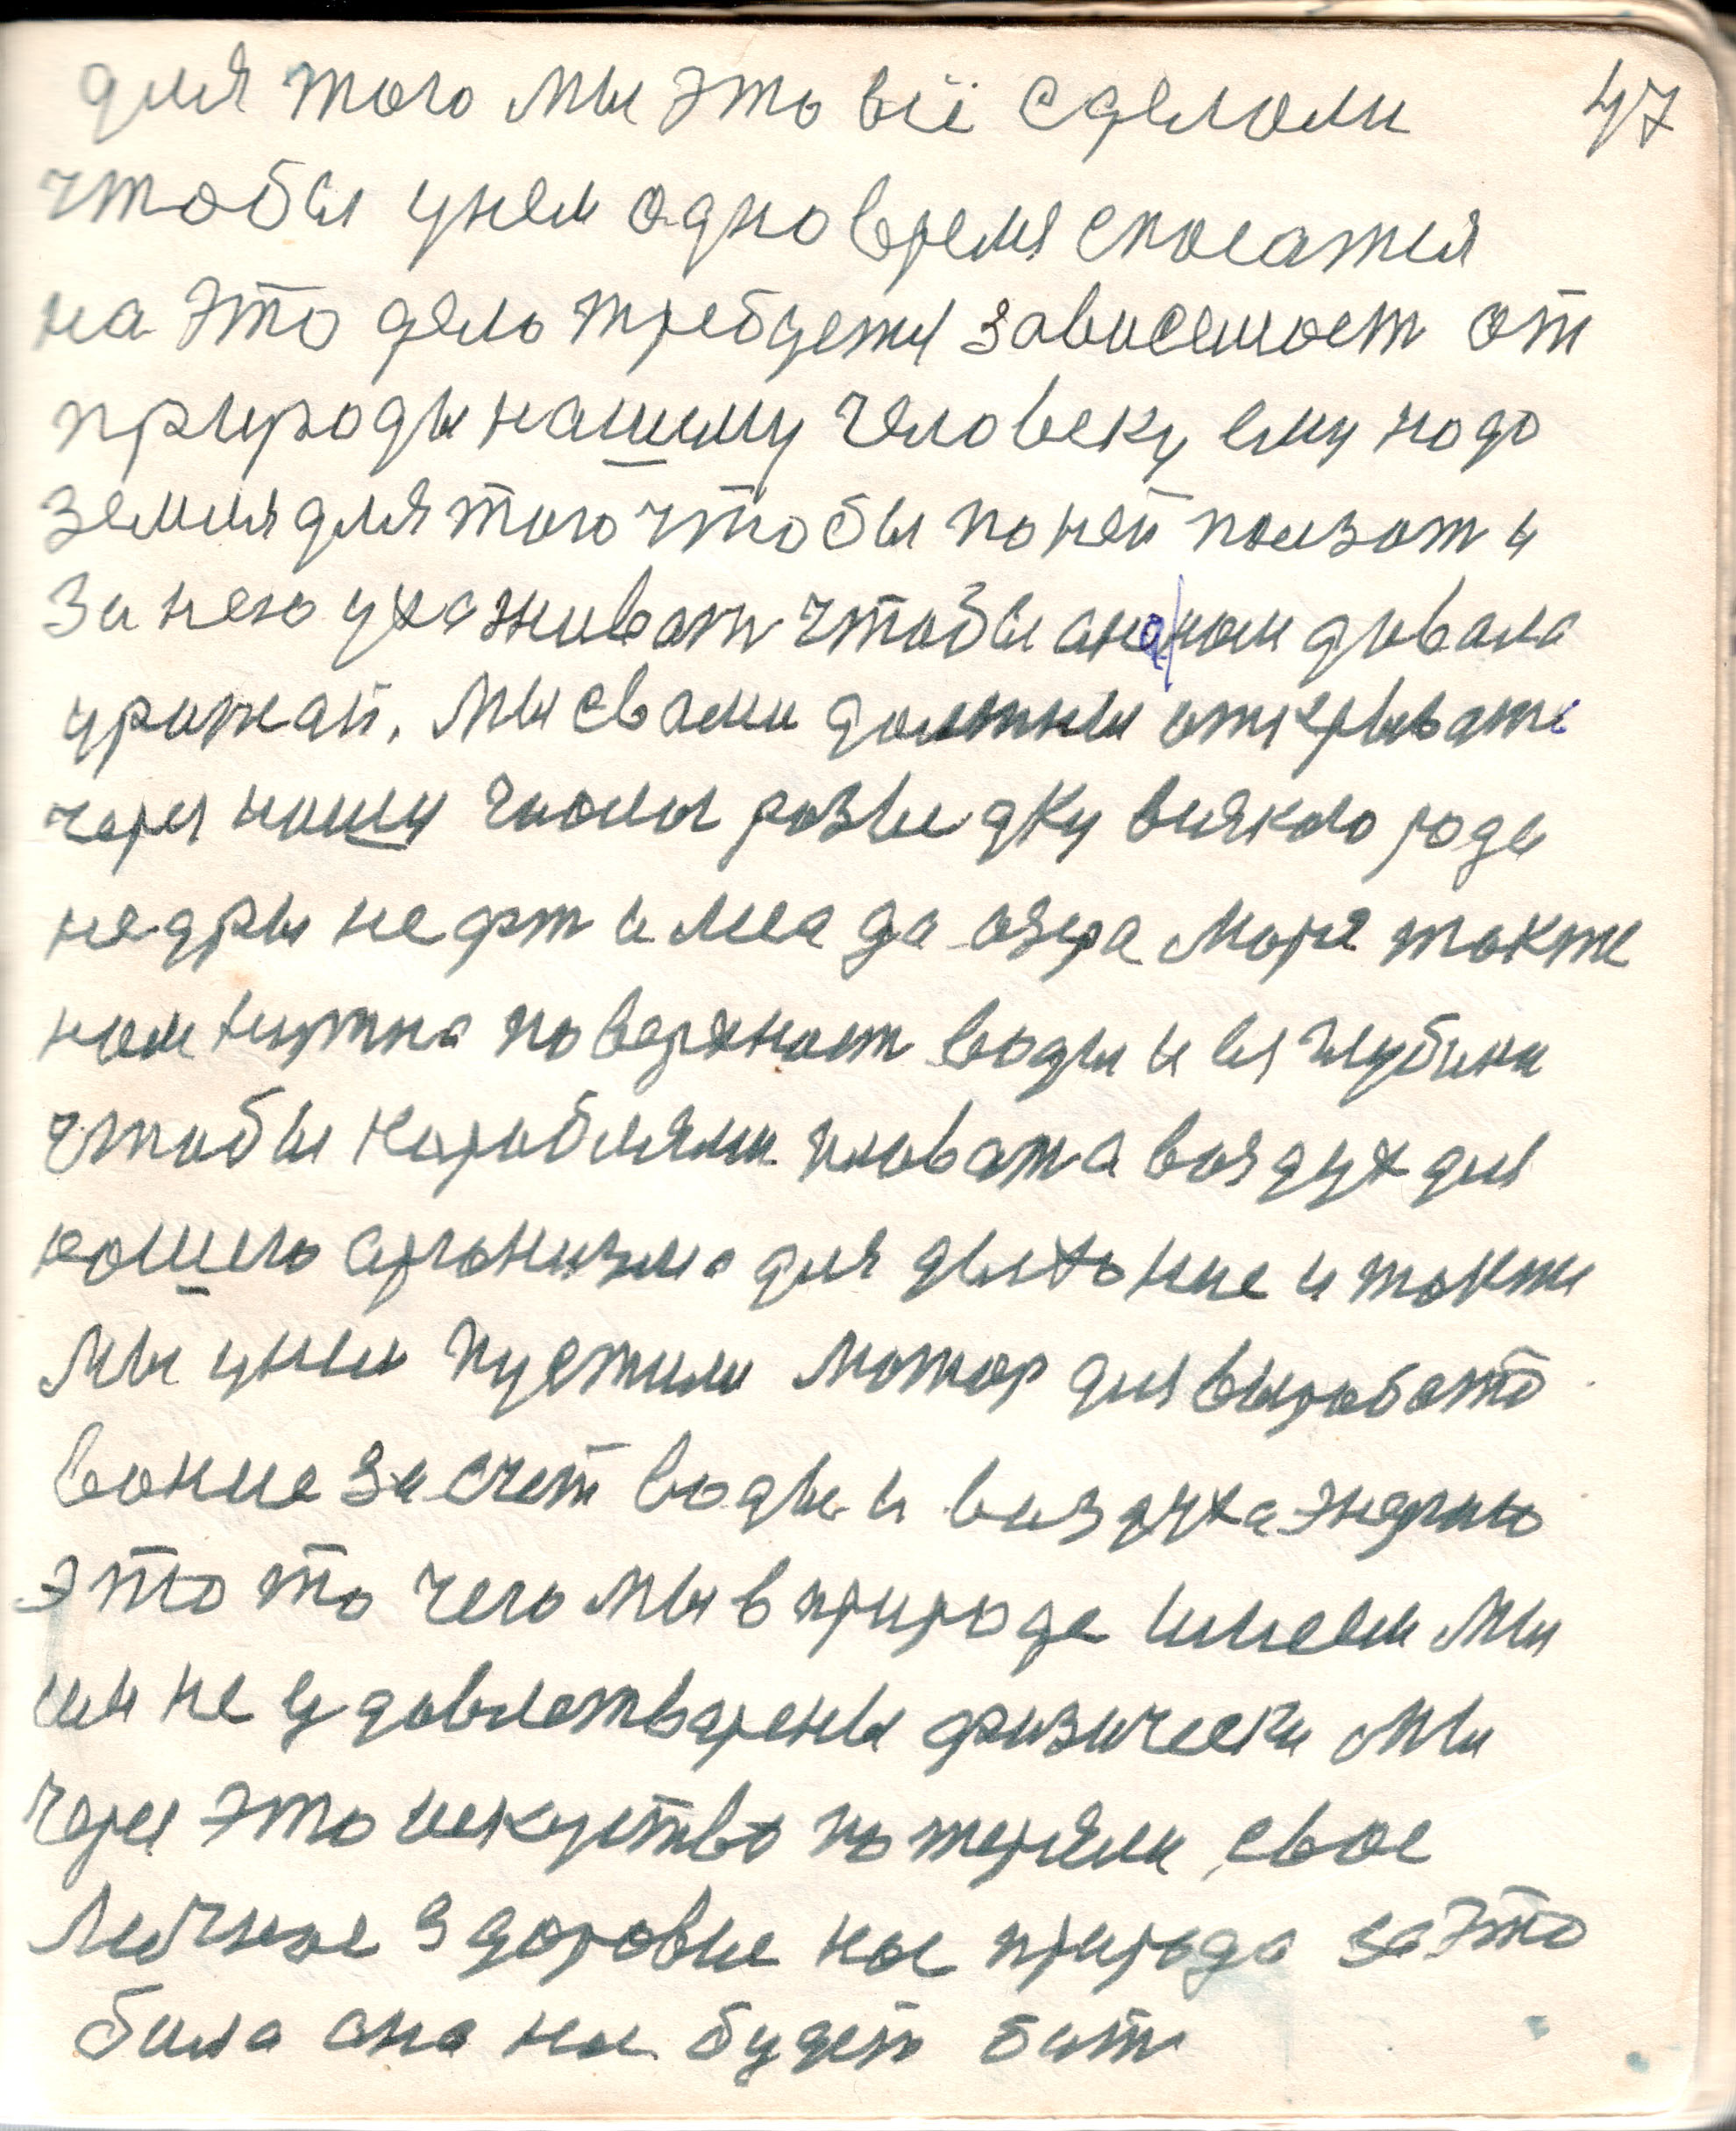 для того мы это всё сделали 47
чтобы унем одно время спосатся
на это дело требуется зависемост от
природы нашему человеку ему надо
земля для того чтобы по ней ползат и
за нею ухаживат чтобы она нам давала
урожай. Мы свами должны открывать
через нашу разведку всякого рода
недры нефт и леса да озера моря также
нам нужна поверхност воды и вся глубина
чтобы кораблями плават а воздух для
нашего арганизма для дыхоние и также
мы унем пустили мотор для выработо
воние за счет воды и воздуха энергию
это то чего мы в природе имеем мы
им не удовлетварены физически мы
через это искуство потеряли свое
личное здоровие нас природа за это
била она нас будет бит